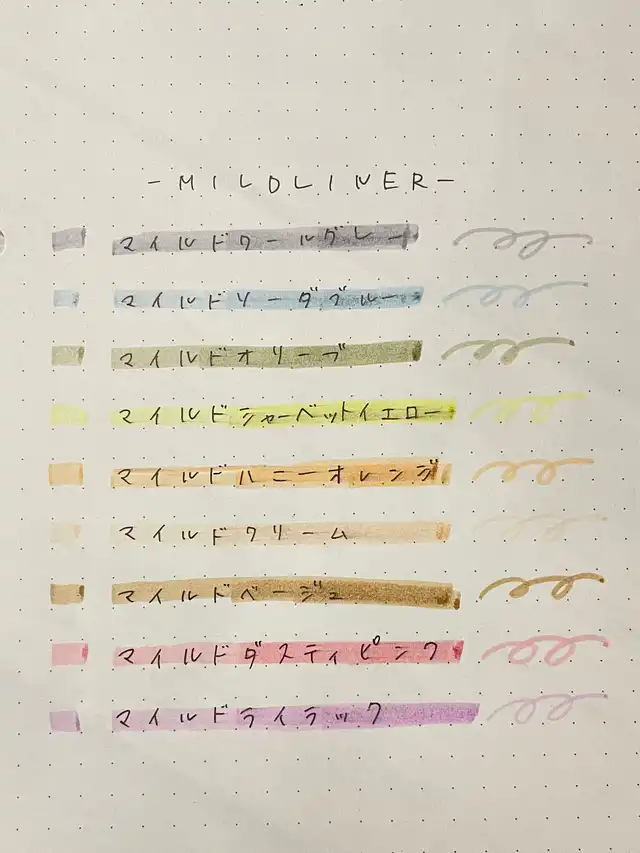 -MILDLINER-
マイルドクールグレー
マイルドリーダブルー
マイルドオリーブ
マイルドシャーベットイエロー
マイルドハニーオレンジ
マイルドクリーム
マイルドベージュ
マイルドダスティピンク
マイルドライラック